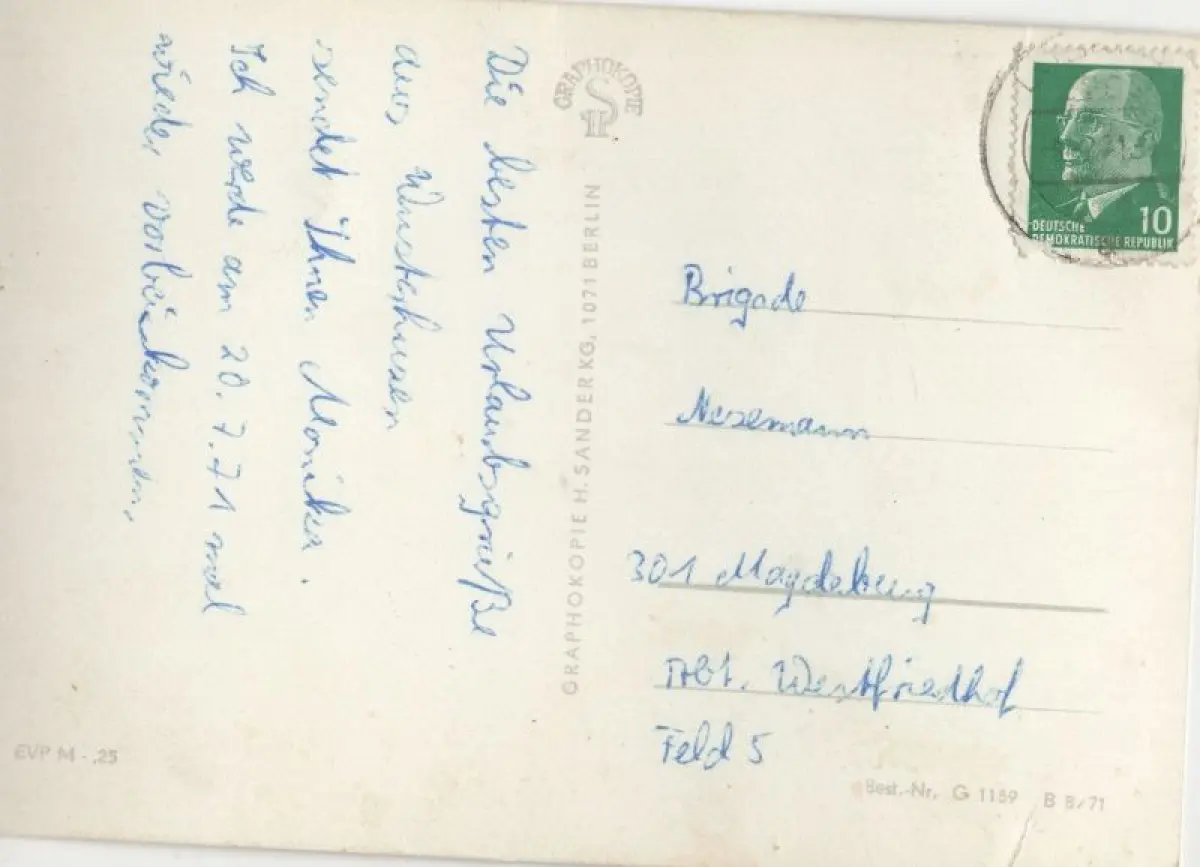 Die besten Urlaubsgrüße
aus Wusterhusen
sendet Ihnen Monika.
Ich werde am 20.7.71 mal
wieder vorbeikommen.
GRAPHOKOPIE
H S
GRAPHOKOPIE H. SANDER KG, 1071 BERLIN
10
DEUTSCHE
DEMOKRATISCHE REPUBLIK
Brigade
Nesemann
301 Magdeburg
Abt. Westfriedhof
Feld 5
EVP M -,25
Best.-Nr. G 1159 B 8/71